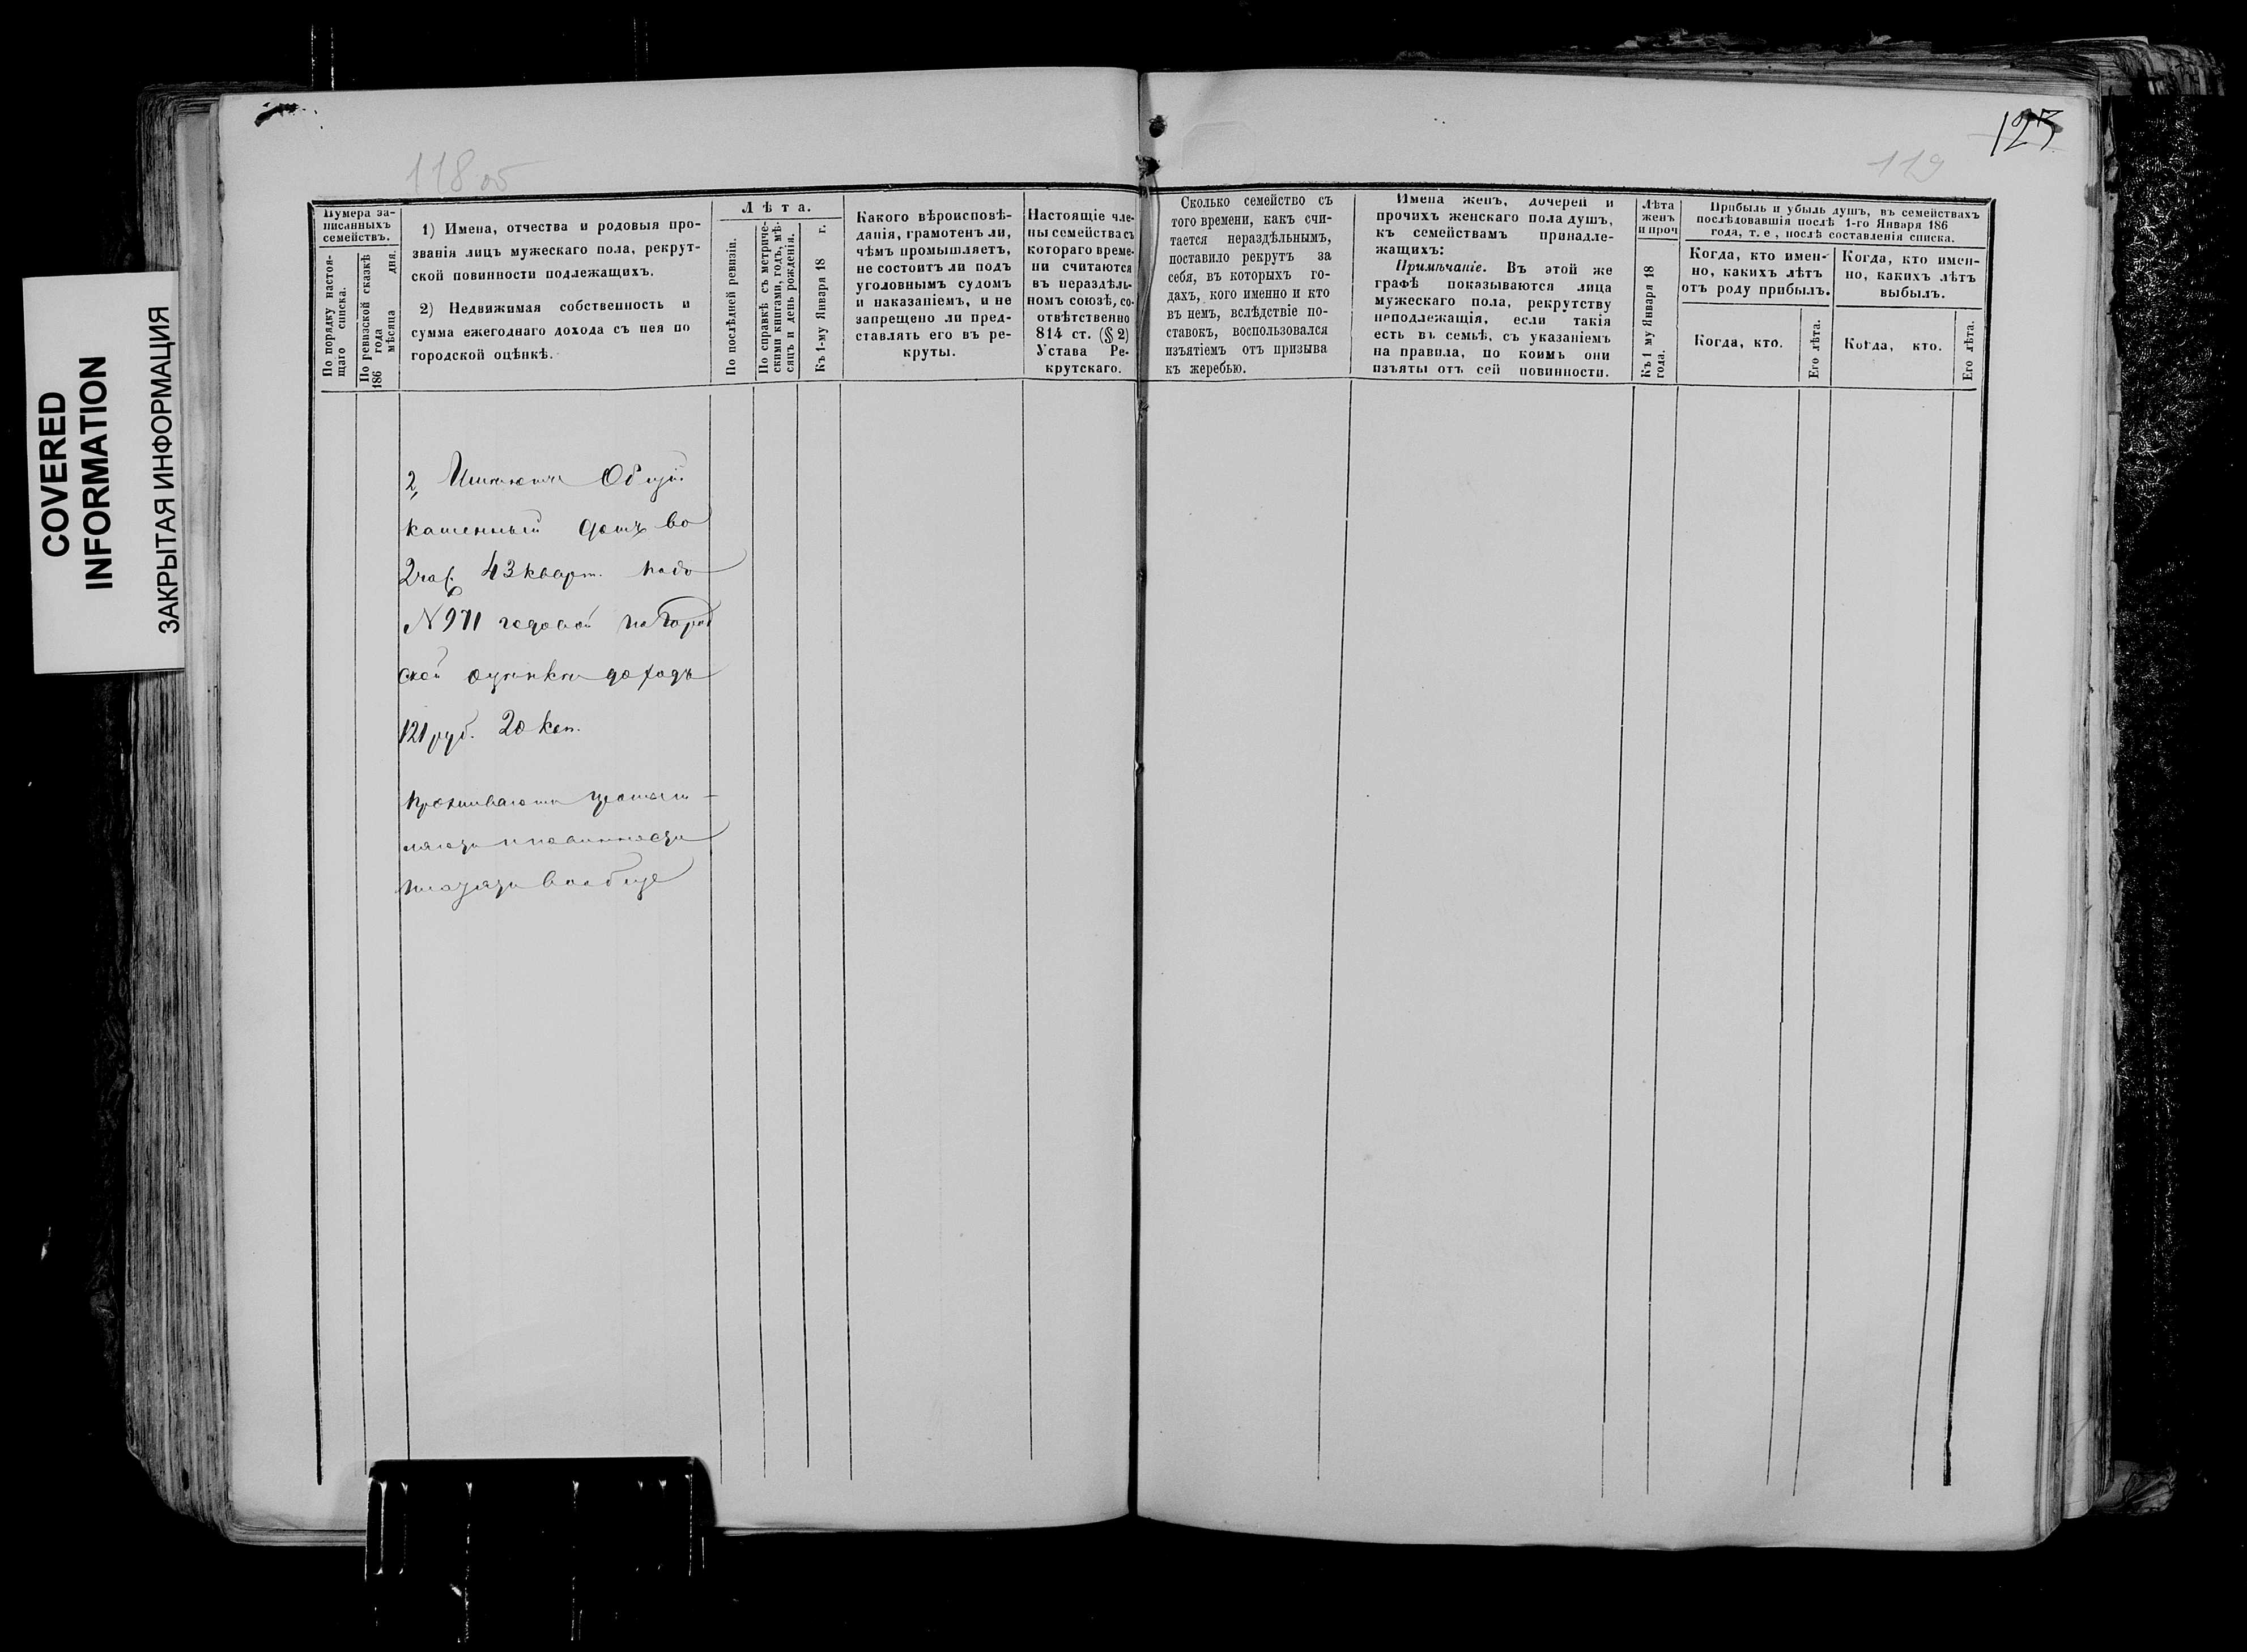 COVERED
INFORMATION
ЗАКРЫТАЯ ИНФОРМАЦИЯ
118 об
Нумера за-
писанныхъ
семействъ.
По порядку настоя-
щаго списка.
По ревизской сказкѣ
186 года мѣсяца дня.
1) Имена, отчества и родовыя про-
званія лицъ мужескаго пола, рекрут-
ской повинности подлежащихъ.
2) Недвижимая собственность и
сумма ежегоднаго дохода съ нея по
городской оцѣнкѣ.
Лѣта.
По послѣдней ревизіи.
По справкѣ съ метриче-
скими книгами, годъ, мѣ-
сяцъ и день рожденія.
Къ 1-му Января 18 г.
Какого вѣроисповѣ-
данія, грамотенъ ли,
чѣмъ промышляетъ,
не состоитъ ли подъ
уголовнымъ судомъ
и наказаніемъ, и не
запрещено ли пред-
ставлять его въ ре-
круты.
Настоящіе чле-
ны семейства съ
котораго време-
ни считаются
въ нераздѣль-
номъ союзѣ, со-
отвѣтственно
814 ст. (§ 2)
Устава Ре-
крутскаго.
2, Имѣютъ Общій
каменный домъ во
2 час. 43 кварт. подъ
№ 971 годовой по Город
ской оцѣнкѣ доходъ
121 руб. 20 коп.
Проживаютъ
и повинности
вообще
123
119
Сколько семейство съ
того времени, какъ счи-
тается нераздѣльнымъ,
поставило рекрутъ за
себя, въ которыхъ го-
дахъ, кого именно и кто
въ немъ, вслѣдствіе по-
ставокъ, воспользовался
изъятіемъ отъ призыва
къ жеребью.
Имена женъ, дочерей и
прочихъ женскаго пола душъ,
къ семействамъ принадле-
жащихъ:
Примѣчаніе. Въ этой же
графѣ показываются лица
мужескаго пола, рекрутству
неподлежащія, если такія
есть въ семьѣ, съ указаніемъ
на правила, по коимъ они
изъяты отъ сей повинности.
Лѣта
женъ
и проч
Къ 1 му Января 18
года.
Прибыль и убыль душъ, въ семействахъ
послѣдовавшія послѣ 1-го Января 186
года, т. е., послѣ составленія списка.
Когда, кто имен-
но, какихъ лѣтъ
отъ роду прибылъ.
Когда, кто.
Его лѣта.
Когда, кто имен-
но, какихъ лѣтъ
выбылъ.
Когда, кто.
Его лѣта.